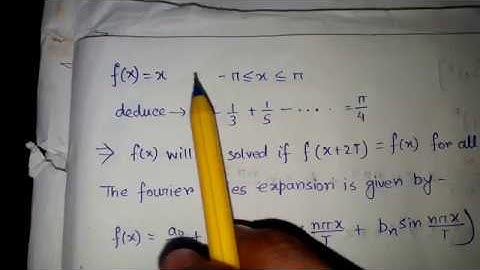 f(x) = x - π ≤ x ≤ π
deduce → - 1/3 + 1/5 - .... = π/4
⇒ f(x) will solved if f(x+2T) = f(x) for all
The fourier expansion is given by -
f(x) = a₀ + nπx/T + bₙ sin nπx/T)